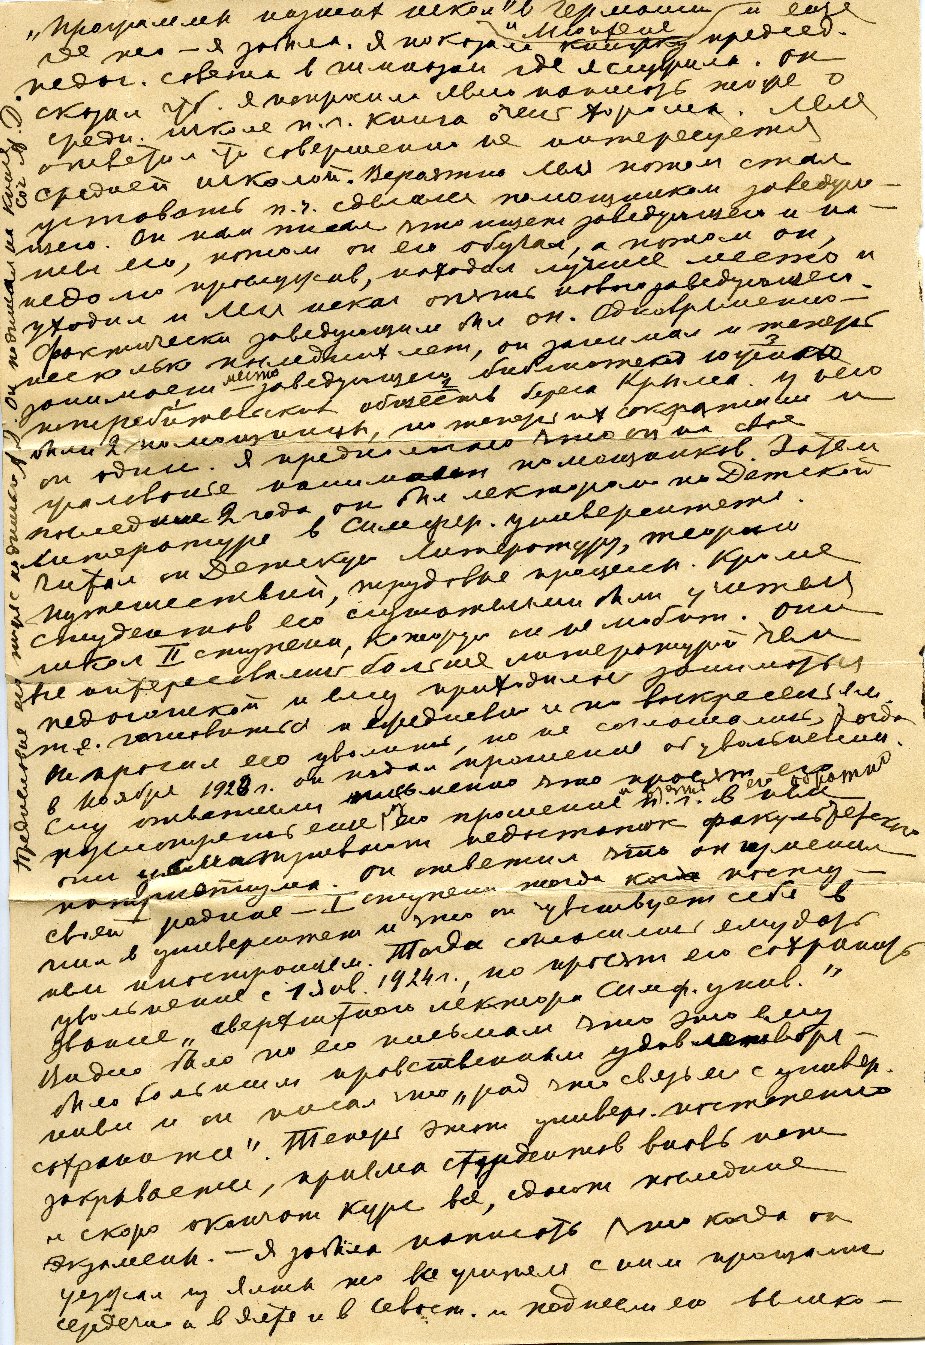 „Программы низших школ" в Германии и еще
где то — я забыла. Я показала книжку председ.
и Монтене
педаг. совета в гимназии где я служила. Он
сказал чт. я попросила Лелю написать тоже о
средн. школе п. ч. книга очень хороша. Леля
ответил что совершенно не интересуется
средней школой. Вероятно Леля потом стал
уставать п. ч. сделался помощником заведую-
щего. Он нам писал что ищет заведующего и на-
шел его, потом он его обучал, а потом он,
недолго прослужив, находил лучшее место и
уходил и Леля искал опять нового заведующего.
Фактически заведующим был он. Одновременно
несколько последних лет, он занимал и теперь
занимает место заведующего библиотекой южно
потребительских обществ берега Крыма. У него
были 2 помощницы, но теперь их сократили и
он один. Я предполагаю что он на свое
жалованье нанимает помощников. Затем
последние 2 года он был лектором по Детской
Литературе в Симфер. университете.
Читал он Детскую Литературу, теорию
путешествий, трудовые процессы. Кроме
студентов его слушателями были учителя
школ II ступени, которых он не любит. Они
все интересовались больше литературой чем
педагогикой и ему приходилось заниматься
т. е. готовиться и ежедневно и по воскресеньям.
Он просил его уволить, но не соглашались, тогда
в Ноябре 1923 г. он подал прошение об увольнении.
Ему ответили письменно что просят его
рассмотреть еще раз его прошение и взять его обратно
п. ч. в нем
они усматривают недостаток факультетского
патриотизма. Он ответил что он изменил
своей родине — I ступени тогда когда посту-
пил в университет и что он чувствует себя в
нем иностранцем. Тогда согласились ему дать
увольнение с 1 янв. 1924 г., но просят его сохранить
звание „сверхштатного лектора Симф. унив."
Видно было по его письмам что это ему
было большим нравственным удовлетворе-
нием и он писал что „рад что связь его с универ.
сохранится". Теперь этот универс. постепенно
закрывается, приема студентов вновь нет
и скоро окончат курс все, сдают последние
экзамены. — Я забыла написать что когда он
уезжал из Ялты то все учителя с ним прощались
сердечно и в Ялте и в Севаст. и поднесли ему велико-